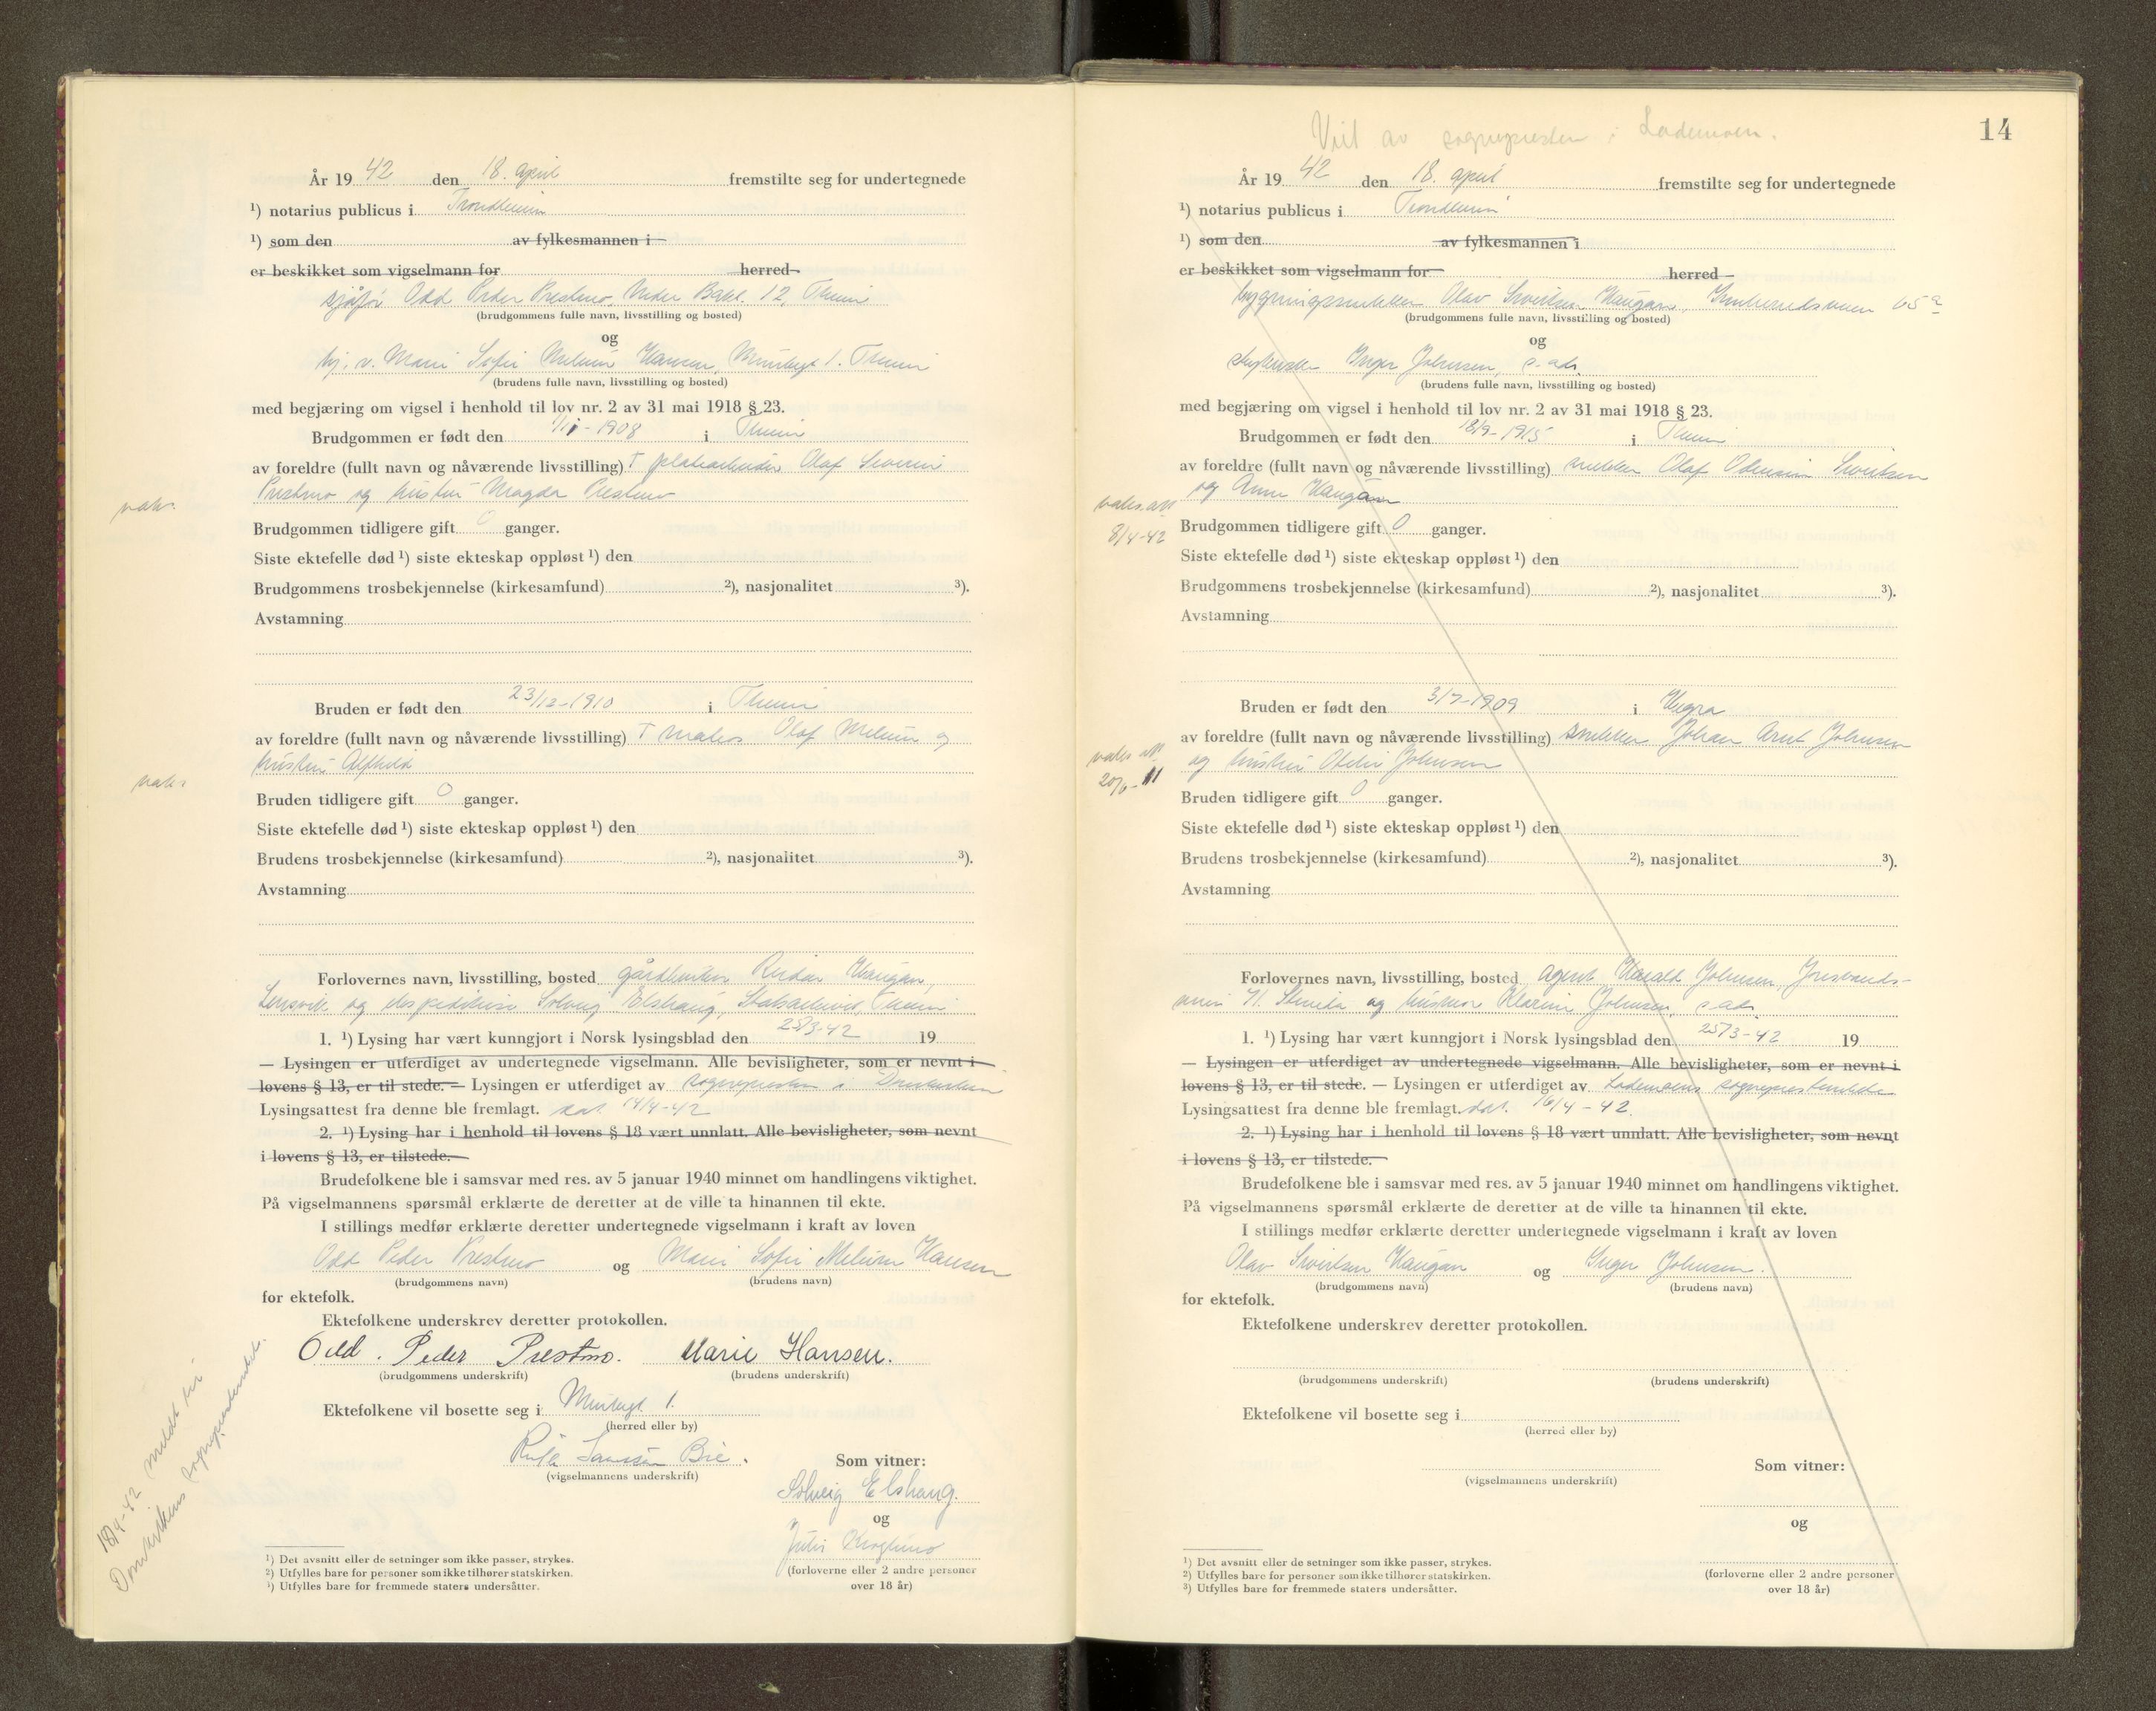 År 19 42 den 18. april fremstilte seg for undertegnede
¹) notarius publicus i Trondheim
¹) som den av fylkesmannen i
er beskikket som vigselmann for herred
sjåfør Odd Peder Prestmo, Nedre Bakl. 12, Theim
(brudgommens fulle navn, livsstilling og bosted)
og
hj. v. Marie Sofie Melum Hansen, 1. Theim
(brudens fulle navn, livsstilling og bosted)
med begjæring om vigsel i henhold til lov nr. 2 av 31 mai 1918 § 23.
Brudgommen er født den 1/11-1908 i Theim
av foreldre (fullt navn og nåværende livsstilling) † platearbeider Olaf Severin
Prestmo og hustru Magda Prestmo
vaks.
Brudgommen tidligere gift 0 ganger.
Siste ektefelle død ¹) siste ekteskap oppløst ¹) den
Brudgommens trosbekjennelse (kirkesamfund) ²), nasjonalitet ³).
Avstamning
Bruden er født den 23/12-1910 i Theim
av foreldre (fullt navn og nåværende livsstilling) † Olaf Melum og
hustru Alfhild
vaks.
Bruden tidligere gift 0 ganger.
Siste ektefelle død ¹) siste ekteskap oppløst ¹) den
Brudens trosbekjennelse (kirkesamfund) ²), nasjonalitet ³).
Avstamning
Forlovernes navn, livsstilling, bosted gårdbruker Reidar Haugan,
Lensvik og Solveig Elshaug, Theim
1. ¹) Lysing har vært kunngjort i Norsk lysingsblad den 25/3-42 19
— Lysingen er utferdiget av undertegnede vigselmann. Alle bevisligheter, som er nevnt i
lovens § 13, er til stede. — Lysingen er utferdiget av sognepresten i Domkirken
Lysingsattest fra denne ble fremlagt. dat. 14/4-42
2. ¹) Lysing har i henhold til lovens § 18 vært unnlatt. Alle bevisligheter, som nevnt
i lovens § 13, er tilstede.
Brudefolkene ble i samsvar med res. av 5 januar 1940 minnet om handlingens viktighet.
På vigselmannens spørsmål erklærte de deretter at de ville ta hinannen til ekte.
I stillings medfør erklærte deretter undertegnede vigselmann i kraft av loven
Odd Peder Prestmo og Marie Sofie Melum Hansen
(brudgommens navn) (brudens navn)
for ektefolk.
Ektefolkene underskrev deretter protokollen.
Odd. Peder Prestmo. Marie Hansen.
(brudgommens underskrift) (brudens underskrift)
Ektefolkene vil bosette seg i 1.
(herred eller by)
(vigselmannens underskrift)
Som vitner:
Solveig Elshaug.
og
(forloverne eller 2 andre personer
over 18 år)
18/4-42 meldt til
Domkirkens sogneprestembede.
¹) Det avsnitt eller de setninger som ikke passer, strykes.
²) Utfylles bare for personer som ikke tilhører statskirken.
³) Utfylles bare for fremmede staters undersåtter.
14
Viet av sognepresten i Lademoen.
År 19 42 den 18. april fremstilte seg for undertegnede
¹) notarius publicus i Trondheim
¹) som den av fylkesmannen i
er beskikket som vigselmann for herred
bygningssnekker Olav Sivertsen Haugan, Innherredsveien 65a
(brudgommens fulle navn, livsstilling og bosted)
og
Inger Johnsen, s. ads.
(brudens fulle navn, livsstilling og bosted)
med begjæring om vigsel i henhold til lov nr. 2 av 31 mai 1918 § 23.
Brudgommen er født den 18/9-1915 i Theim
av foreldre (fullt navn og nåværende livsstilling) snekker Olaf Odensin Sivertsen
og Anna Haugan
vaks. att.
8/4-42
Brudgommen tidligere gift 0 ganger.
Siste ektefelle død ¹) siste ekteskap oppløst ¹) den
Brudgommens trosbekjennelse (kirkesamfund) ²), nasjonalitet ³).
Avstamning
Bruden er født den 3/7-1909 i Hegra
av foreldre (fullt navn og nåværende livsstilling) snekker Johan Arnt Johnsen
og hustru Otelie Johnsen
vaks att.
20/6-11
Bruden tidligere gift 0 ganger.
Siste ektefelle død ¹) siste ekteskap oppløst ¹) den
Brudens trosbekjennelse (kirkesamfund) ²), nasjonalitet ³).
Avstamning
Forlovernes navn, livsstilling, bosted agent Harald Johnsen,
Strinda og husmor Klarine Johnsen, s. ads.
1. ¹) Lysing har vært kunngjort i Norsk lysingsblad den 25/3-42 19
— Lysingen er utferdiget av undertegnede vigselmann. Alle bevisligheter, som er nevnt i
lovens § 13, er til stede. — Lysingen er utferdiget av Lademoens sogneprestembede
Lysingsattest fra denne ble fremlagt. dat. 16/4-42.
2. ¹) Lysing har i henhold til lovens § 18 vært unnlatt. Alle bevisligheter, som nevnt
i lovens § 13, er tilstede.
Brudefolkene ble i samsvar med res. av 5 januar 1940 minnet om handlingens viktighet.
På vigselmannens spørsmål erklærte de deretter at de ville ta hinannen til ekte.
I stillings medfør erklærte deretter undertegnede vigselmann i kraft av loven
Olav Sivertsen Haugan og Inger Johnsen.
(brudgommens navn) (brudens navn)
for ektefolk.
Ektefolkene underskrev deretter protokollen.
(brudgommens underskrift) (brudens underskrift)
Ektefolkene vil bosette seg i
(herred eller by)
(vigselmannens underskrift)
Som vitner:
og
(forloverne eller 2 andre personer
over 18 år)
¹) Det avsnitt eller de setninger som ikke passer, strykes.
²) Utfylles bare for personer som ikke tilhører statskirken.
³) Utfylles bare for fremmede staters undersåtter.